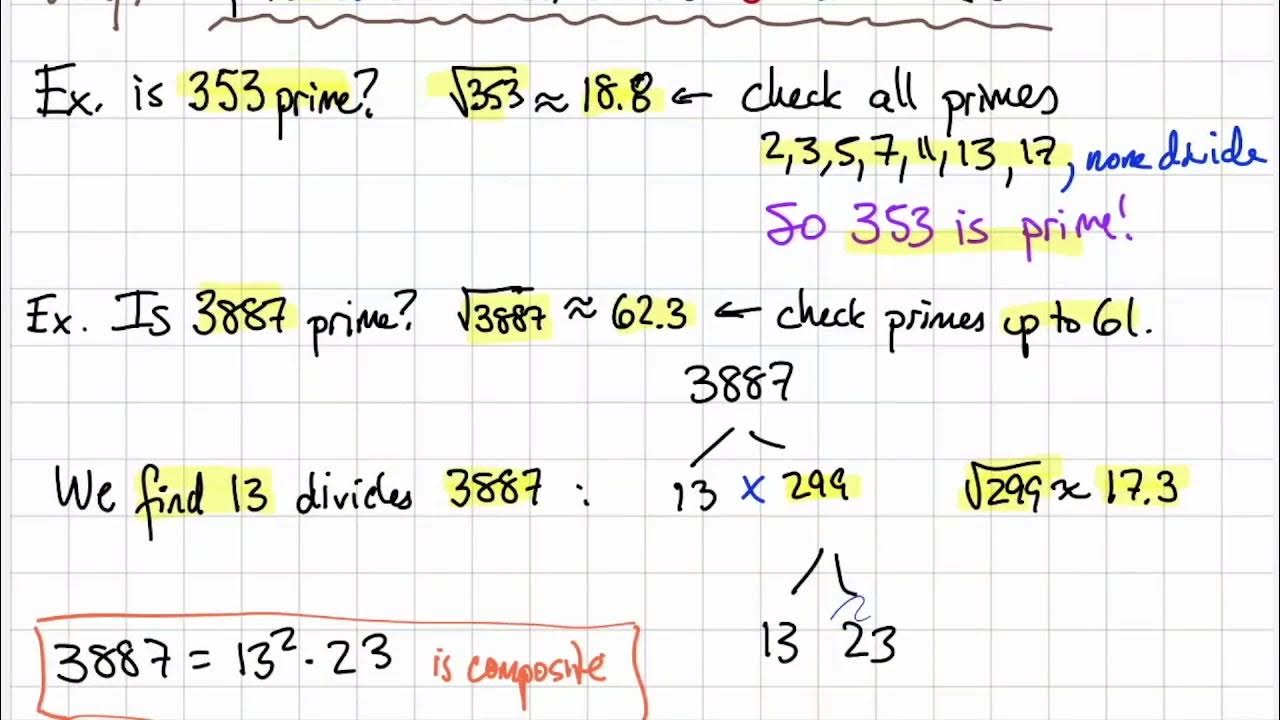 Ex. is 353 prime? √353 ≈ 18.8 ← check all primes
2, 3, 5, 7, 11, 13, 17, none divide
So 353 is prime!
Ex. Is 3887 prime? √3887 ≈ 62.3 ← check primes up to 61.
3887
We find 13 divides 3887 : 13 × 299 √299 ≈ 17.3
13 23
3887 = 13² · 23 is composite